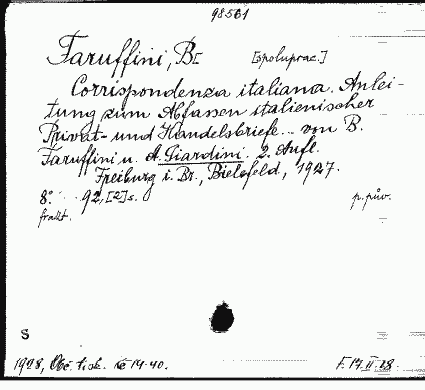 98561
Taruffini, B. [spoluprac.]
Corrispondenza italiana. Anlei-
tung zum Abfassen italienischer
Privat- und Handelsbriefe... von B.
Taruffini u. A. Giardini. 2. Aufl.
Freiburg i. Br., Bielefeld, 1927.
8°. 92, [2] s. p. pův.
frakt.
S
1928, Obč. tisk. Kč 14.40. F. 17.II.28.